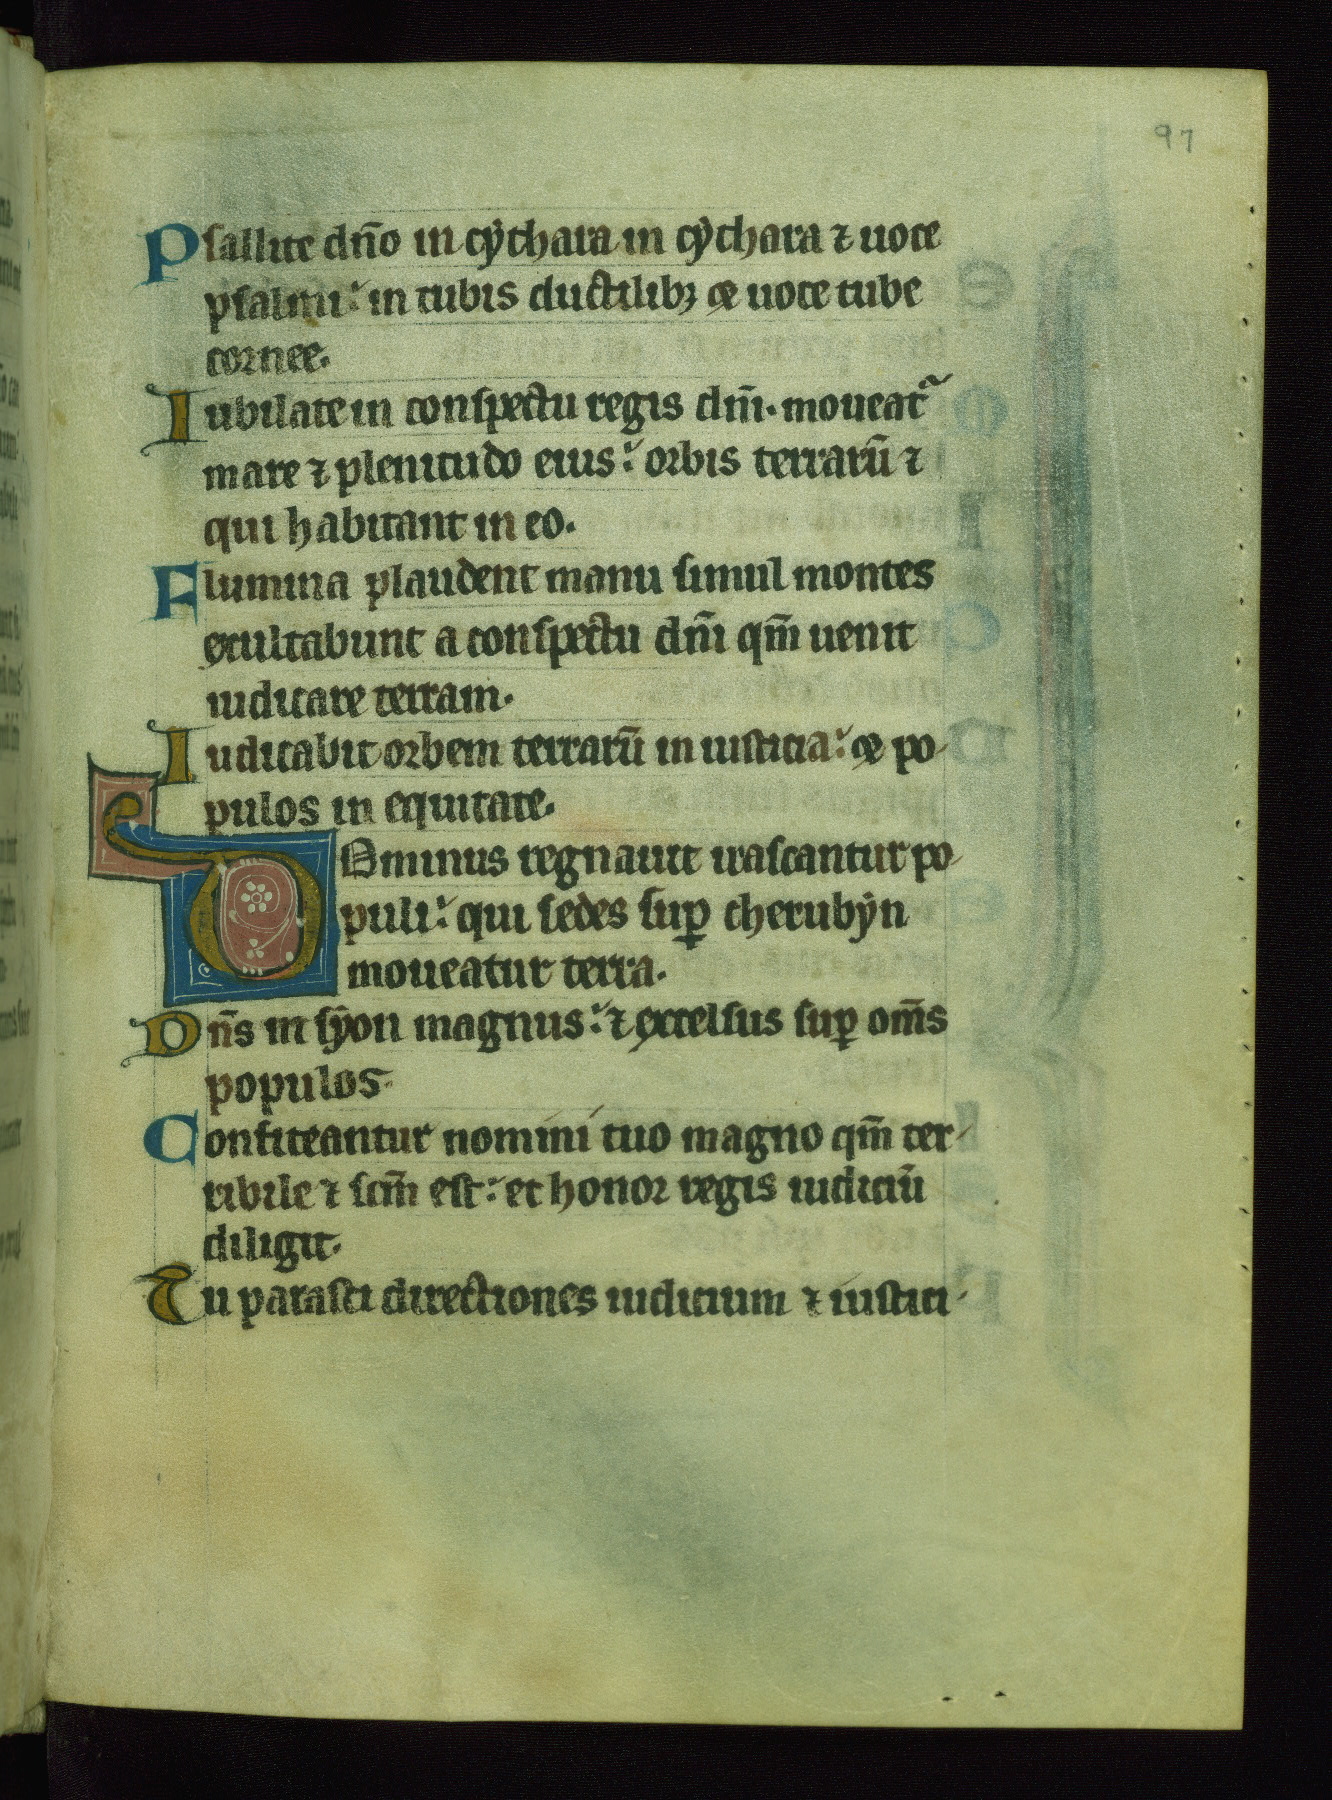 97
Psallite dn̄o in cẏthara in cẏthara ⁊ uoce
psalmi: in tubis ductilibꝫ et uoce tube
cornee.
Iubilate in conspectu regis dn̄i. moueatᷓ
mare ⁊ plenitudo eius: orbis terrarū ⁊
qui habitant in eo.
Flumina plaudent manu simul montes
exultabunt a conspectu dn̄i qm̄ uenit
iudicare terram.
Iudicabit orbem terrarū in iusticia: et po-
pulos in equitate.
DOminus regnauit irascantur po-
puli: qui sedes suꝑ cherubẏn
moueatur terra.
Dn̄s in sẏon magnus: ⁊ excelsus suꝑ om̄s
populos.
Confiteantur nomini tuo magno qm̄ ter-
ribile ⁊ scm̄ est: et honor regis iudiciū
diligit.
Tu parasti directiones iudicium ⁊ iustici-